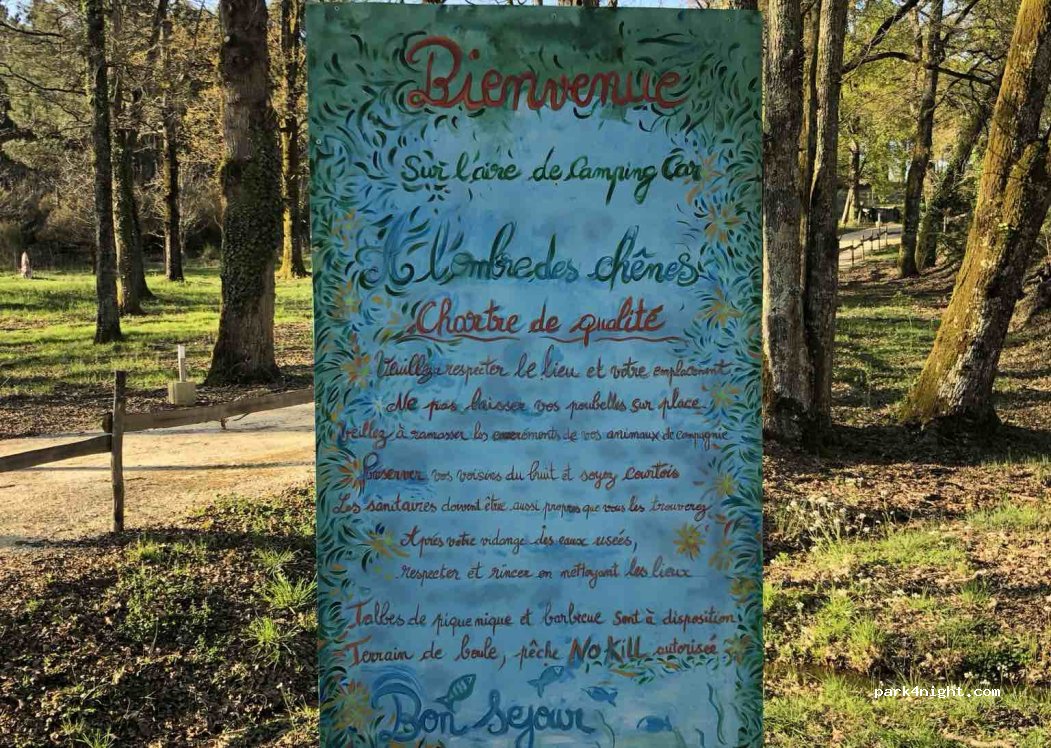 Bienvenue
Sur l'aire de Camping Car
A l'ombre des chênes
Chartre de qualité
Veuillez respecter le lieu et votre emplacement
Ne pas laisser vos poubelles sur place
Veillez à ramasser les excréments de vos animaux de compagnie
Préserver vos voisins du bruit et soyez courtois
Les sanitaires doivent être aussi propres que vous les trouverez
Après votre vidange des eaux usées,
respecter et rincer en nettoyant les lieux
Talbes de pique nique et barbecue sont à disposition
Terrain de boule, pêche No Kill autorisée
Bon sejour
park4night.com